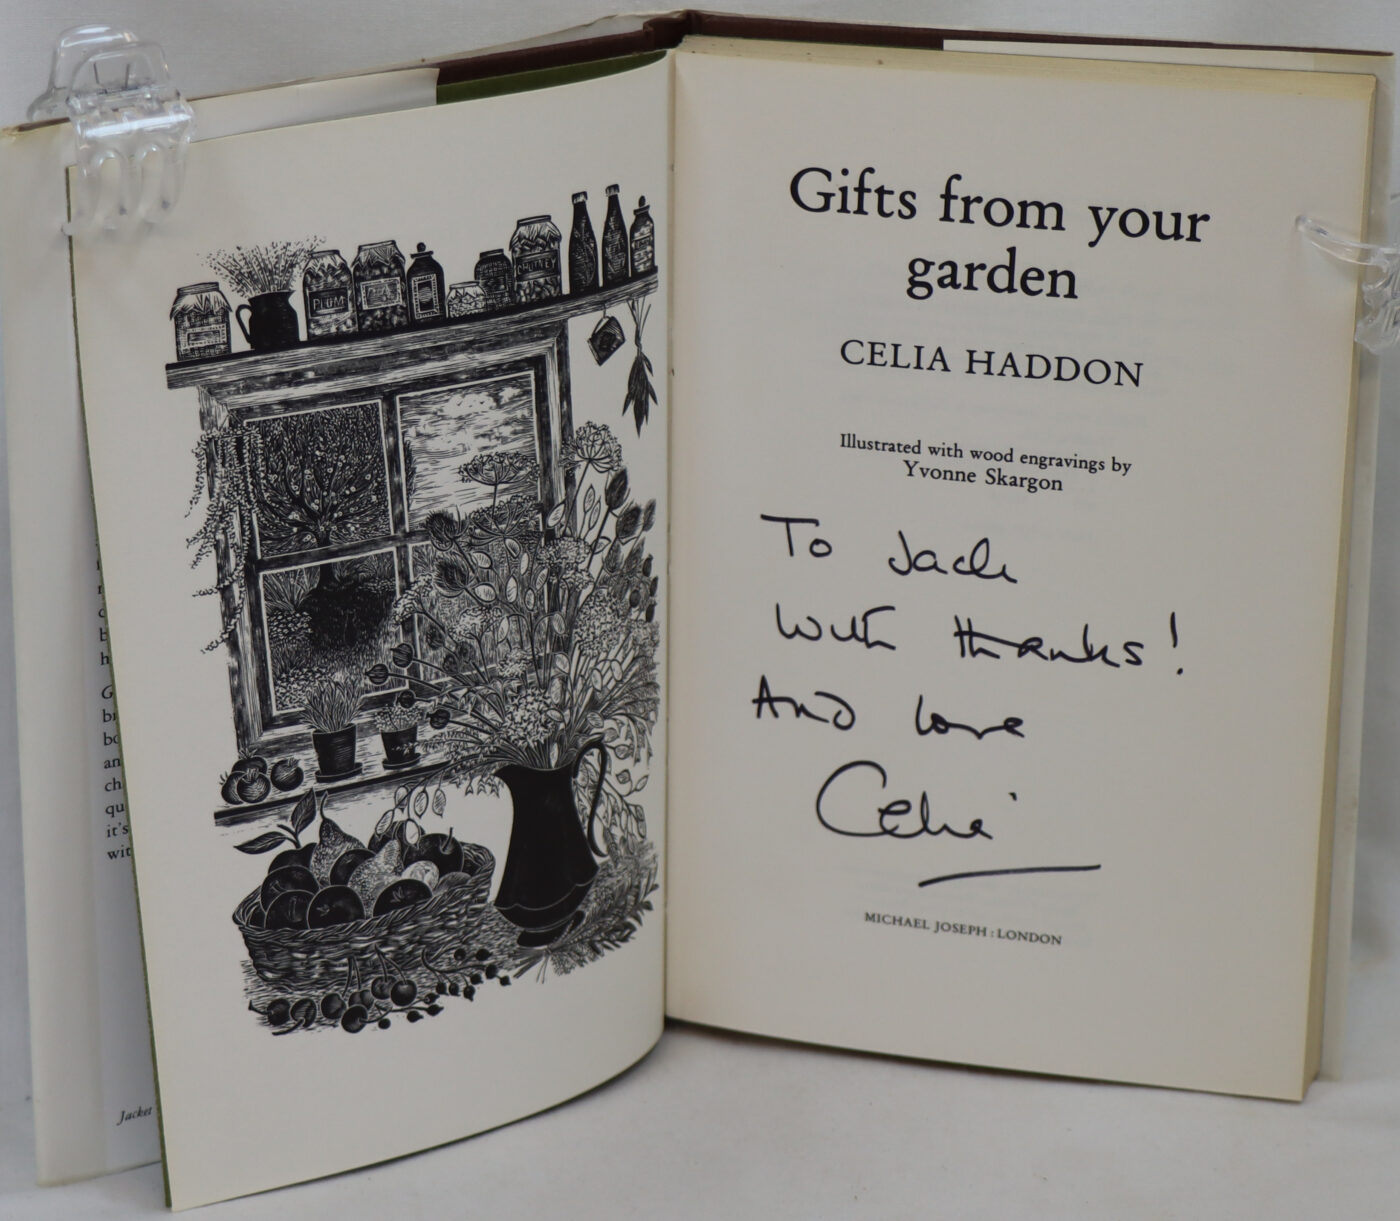 PLUM
CHUTNEY
G
an
ch
qu
it's
wit
Jacket
Gifts from your
garden
CELIA HADDON
Illustrated with wood engravings by
Yvonne Skargon
To Jack
With thanks!
And love
Celia
MICHAEL JOSEPH : LONDON